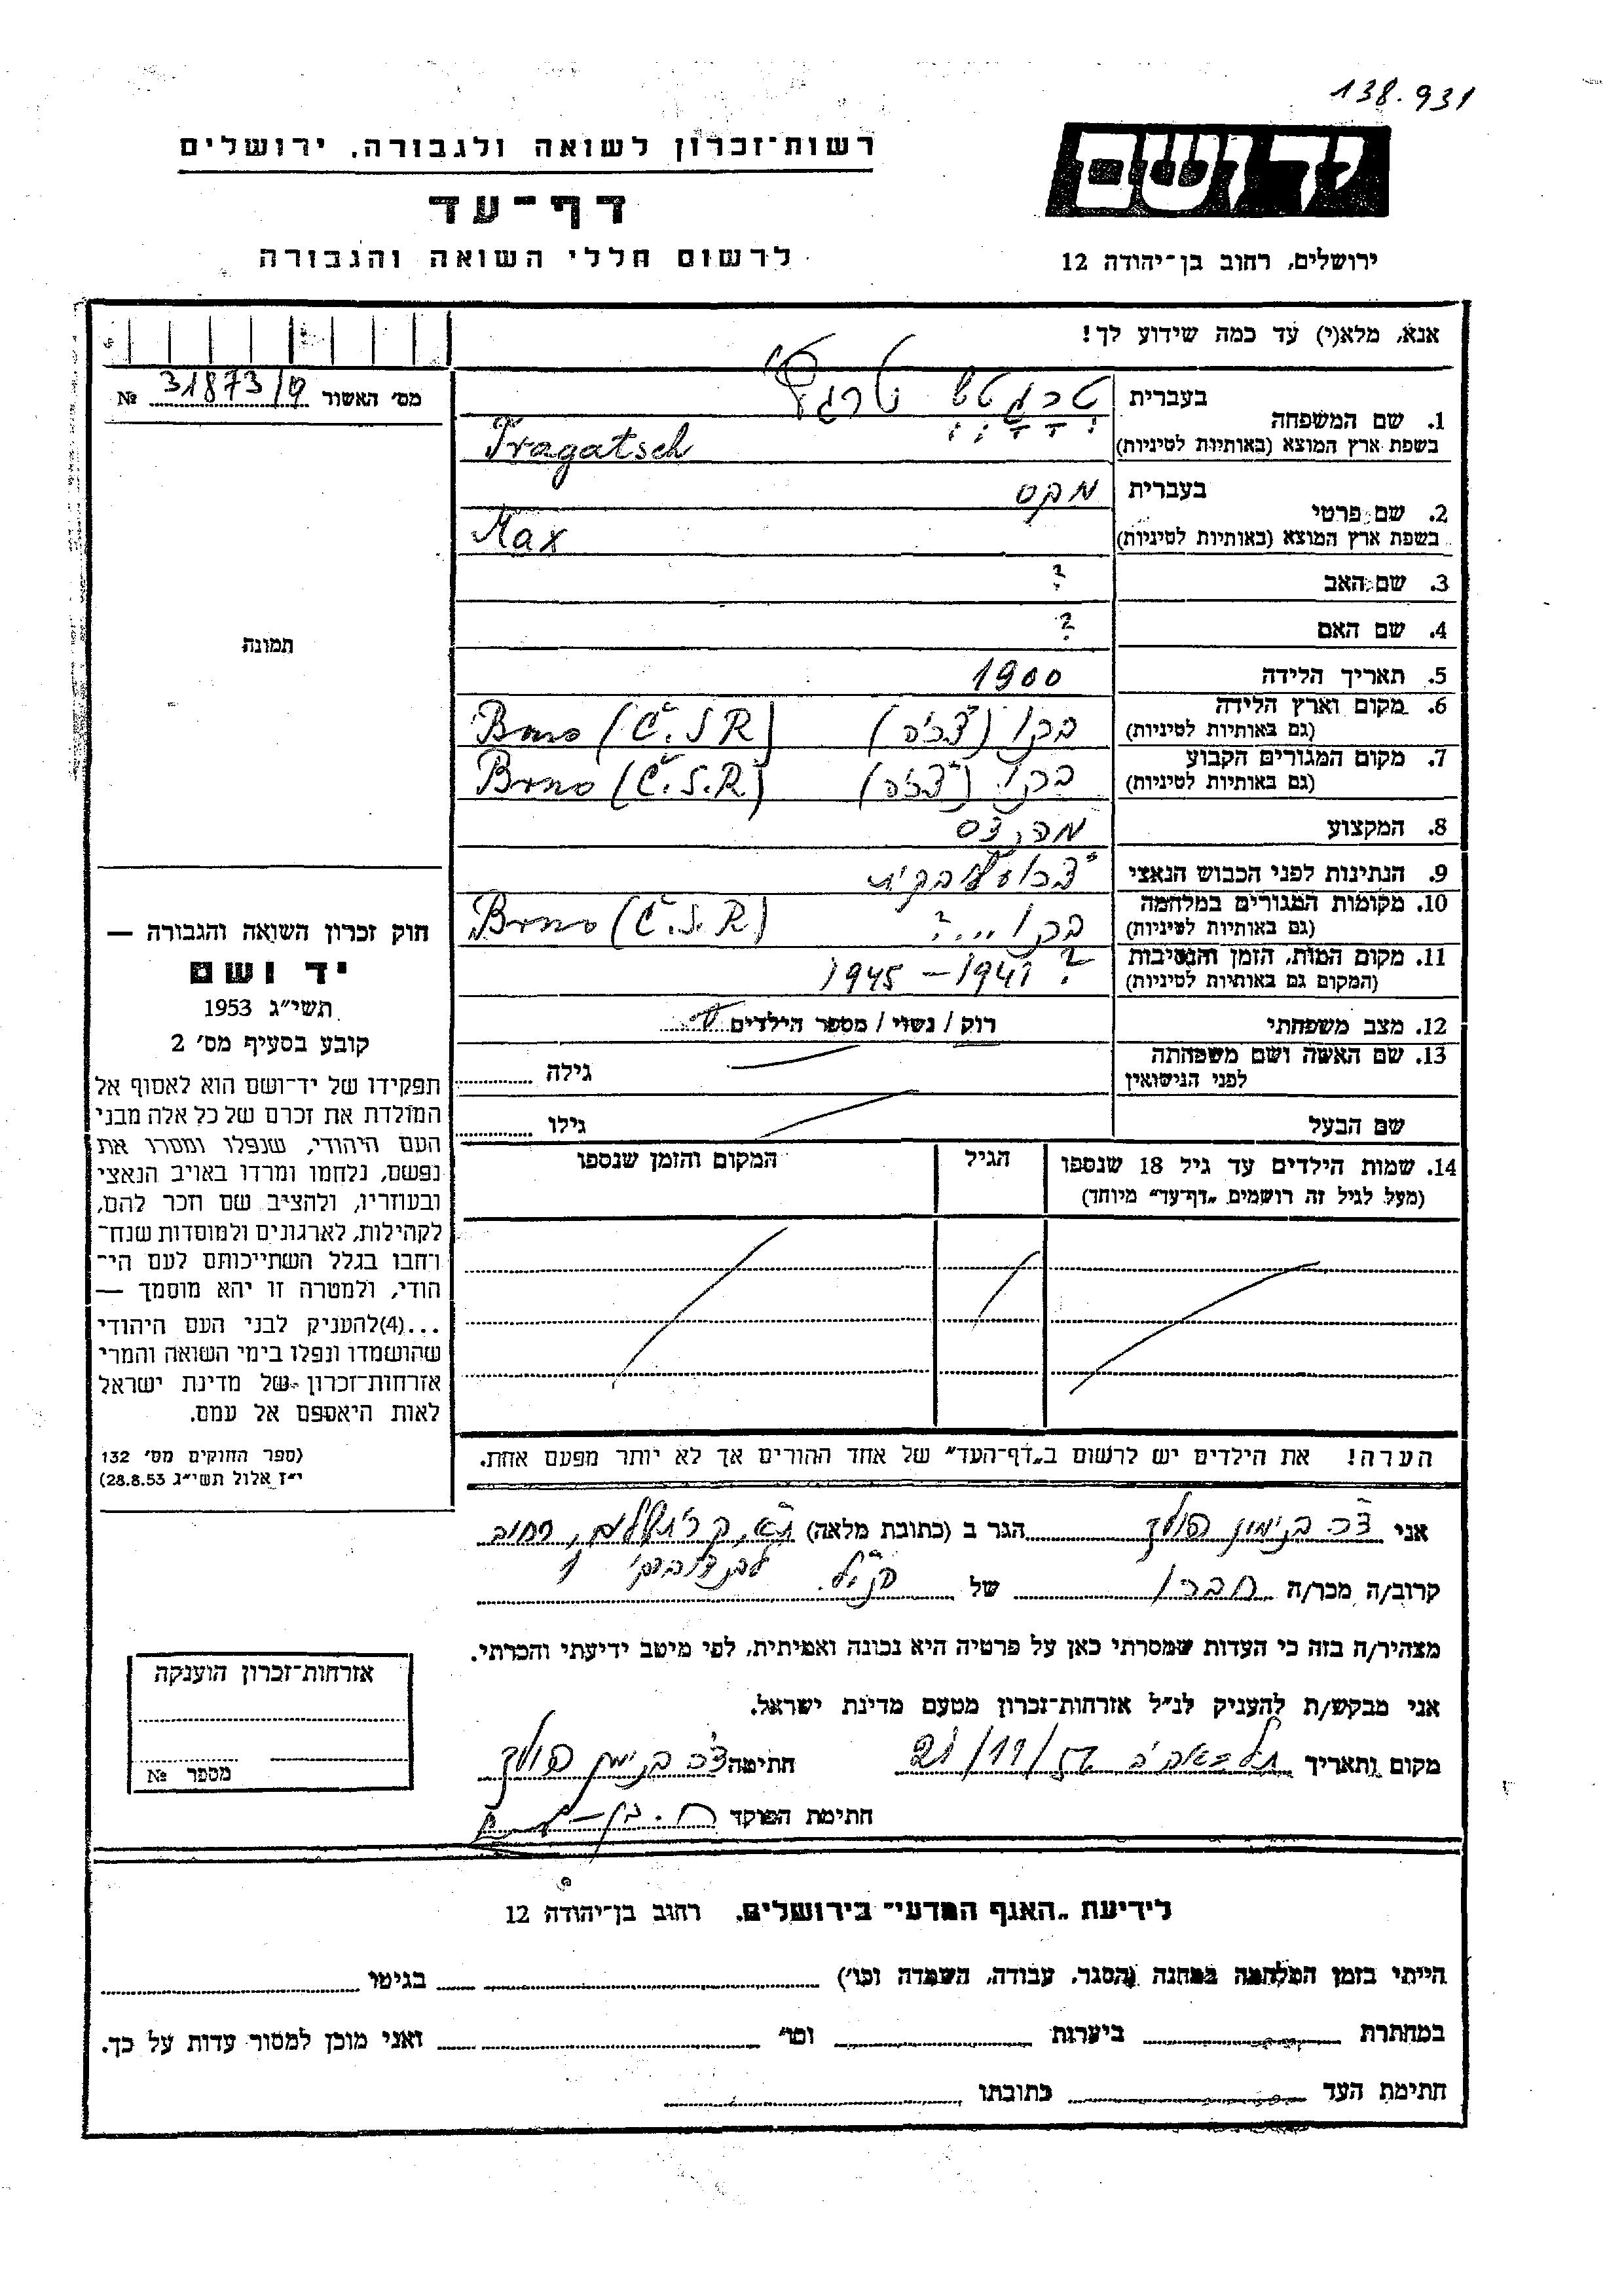 138.931
רשות־זכרון לשואה ולגבורה, ירושלים
יד ושם
דף־עד
לרשום חללי השואה והגבורה
ירושלים, רחוב בן־יהודה 12
אנא, מלא(י) עד כמה שידוע לך!
מס׳ האשור 31873/ № 
1. שם המשפחה בעברית
בשפת ארץ המוצא (באותיות לטיניות) Tragatsch
2. שם פרטי בעברית מקס
בשפת ארץ המוצא (באותיות לטיניות) Max
3. שם האב ?
4. שם האם ?
תמונה
5. תאריך הלידה 1900
6. מקום וארץ הלידה (גם באותיות לטיניות) ברנו (צ'כיה) Brno (Č.S.R)
7. מקום המגורים הקבוע (גם באותיות לטיניות) ברנו (צ'כיה) Brno (Č.S.R)
8. המקצוע מהנדס
9. הנתינות לפני הכבוש הנאצי
10. מקומות המגורים במלחמה (גם באותיות לטיניות) ברנו ...? Brno (Č.S.R)
11. מקום המות, הזמן והנסיבות (המקום גם באותיות לטיניות) ? 1941 – 1945
12. מצב משפחתי רוק / נשוי / מספר הילדים
13. שם האשה ושם משפחתה לפני הנישואין גילה
שם הבעל גילו
14. שמות הילדים עד גיל 18 שנספו הגיל המקום והזמן שנספו
(מעל לגיל זה רושמים „דף־עד״ מיוחד)
חוק זכרון השואה והגבורה —
יד ושם
תשי״ג 1953
קובע בסעיף מס׳ 2
תפקידו של יד־ושם הוא לאסוף אל
המולדת את זכרם של כל אלה מבני
העם היהודי, שנפלו ומסרו את
נפשם, נלחמו ומרדו באויב הנאצי
ובעוזריו, ולהציב שם וזכר להם,
לקהילות, לארגונים ולמוסדות שנח־
רבו בגלל השתייכותם לעם הי־
הודי, ולמטרה זו יהא מוסמך —
...(4)להעניק לבני העם היהודי
שהושמדו ונפלו בימי השואה והמרי
אזרחות־זכרון של מדינת ישראל
לאות היאספם אל עמם.
(ספר החוקים מס׳ 132
י״ז אלול תשי״ג 28.8.53)
הערה! את הילדים יש לרשום ב„דף־העד״ של אחד ההורים אך לא יותר מפעם אחת.
אני הגר ב (כתובת מלאה)
קרוב/ה מכר/ה חברו של הנ"ל
מצהיר/ה בזה כי העדות שמסרתי כאן על פרטיה היא נכונה ואמיתית, לפי מיטב ידיעתי והכרתי.
אני מבקש/ת להעניק לנ״ל אזרחות־זכרון מטעם מדינת ישראל.
מקום ותאריך תל אביב 21/11/ חתימה
חתימת הפוקד
אזרחות־זכרון הוענקה
מספר №
לידיעת „האגף המדעי״ בירושלים, רחוב בן־יהודה 12
הייתי בזמן המלחמה במחנה (הסגר, עבודה, השמדה וכו׳) בגיטו
במחתרת ביערות וכו׳ ואני מוכן למסור עדות על כך.
חתימת העד כתובתו